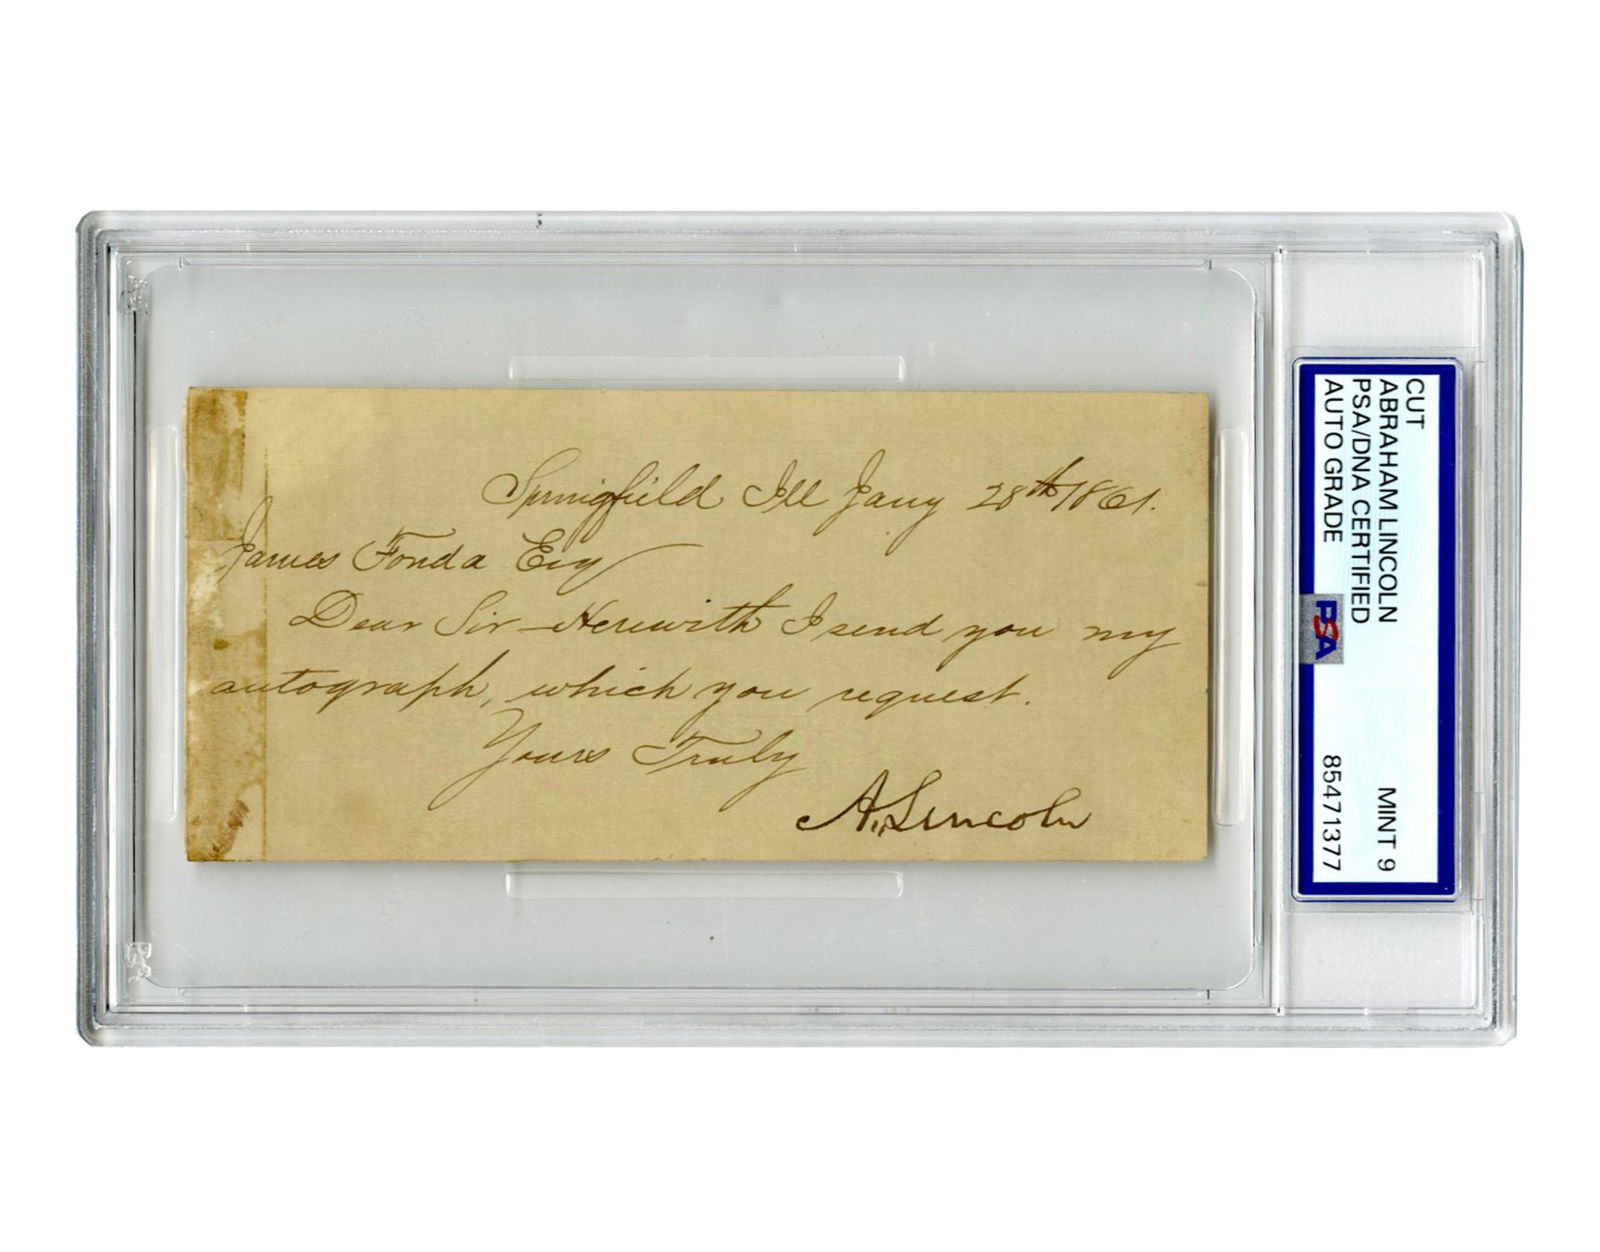 Springfield Ill Jany 28th 1861.
James Fonda Esq
Dear Sir - Herewith I send you my
autograph, which you request.
Yours Truly
A. Lincoln
CUT
ABRAHAM LINCOLN MINT 9
PSA/DNA CERTIFIED
AUTO GRADE 85471377
PSA